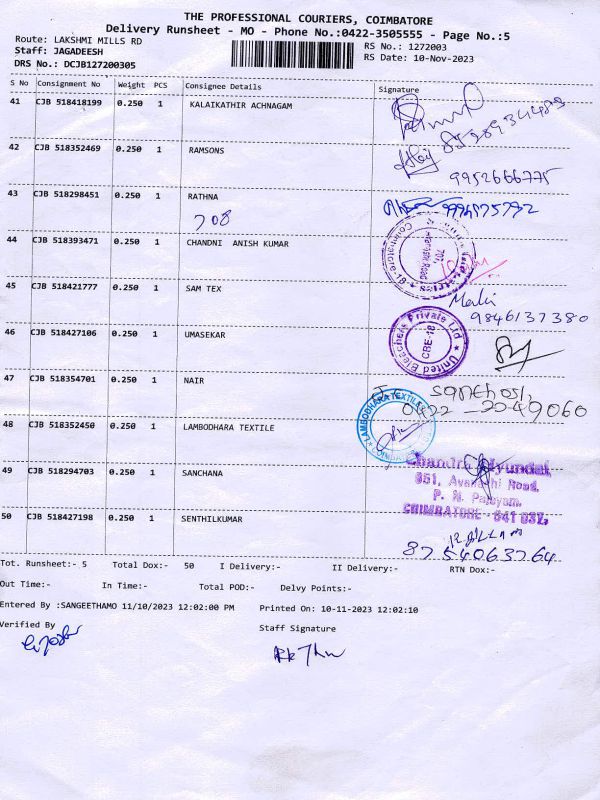 THE PROFESSIONAL COURIERS, COIMBATORE
Delivery Runsheet - MO - Phone No.:0422-3505555 - Page No.:5
Route: LAKSHMI MILLS RD
RS No.: 1272003
Staff: JAGADEESH
RS Date: 10-Nov-2023
DRS No.: DCJB127200305
S No Consignment No Weight PCS Consignee Details Signature
41 CJB 518418199 0.250 1 KALAIKATHIR ACHNAGAM
42 CJB 518352469 0.250 1 RAMSONS
9952666775
43 CJB 518298451 0.250 1 RATHNA
708
44 CJB 518393471 0.250 1 CHANDNI ANISH KUMAR
701,
Avanashi Road
Coimbatore-18
45 CJB 518421777 0.250 1 SAM TEX
9846137380
46 CJB 518427106 0.250 1 UMASEKAR
United Bleachers Private Ltd
CBE-18
47 CJB 518354701 0.250 1 NAIR
Santhosh
0422 - 2049060
48 CJB 518352450 0.250 1 LAMBODHARA TEXTILE
LAMBODHARA TEXTILES
49 CJB 518294703 0.250 1 SANCHANA
Chandra Hyundai,
951, Avanashi Road,
P. N. Palayam,
COIMBATORE - 641 037.
50 CJB 518427198 0.250 1 SENTHILKUMAR
8754063764
Tot. Runsheet:- 5 Total Dox:- 50 I Delivery:- II Delivery:- RTN Dox:-
Out Time:- In Time:- Total POD:- Delvy Points:-
Entered By :SANGEETHAMO 11/10/2023 12:02:00 PM Printed On: 10-11-2023 12:02:10
Verified By Staff Signature